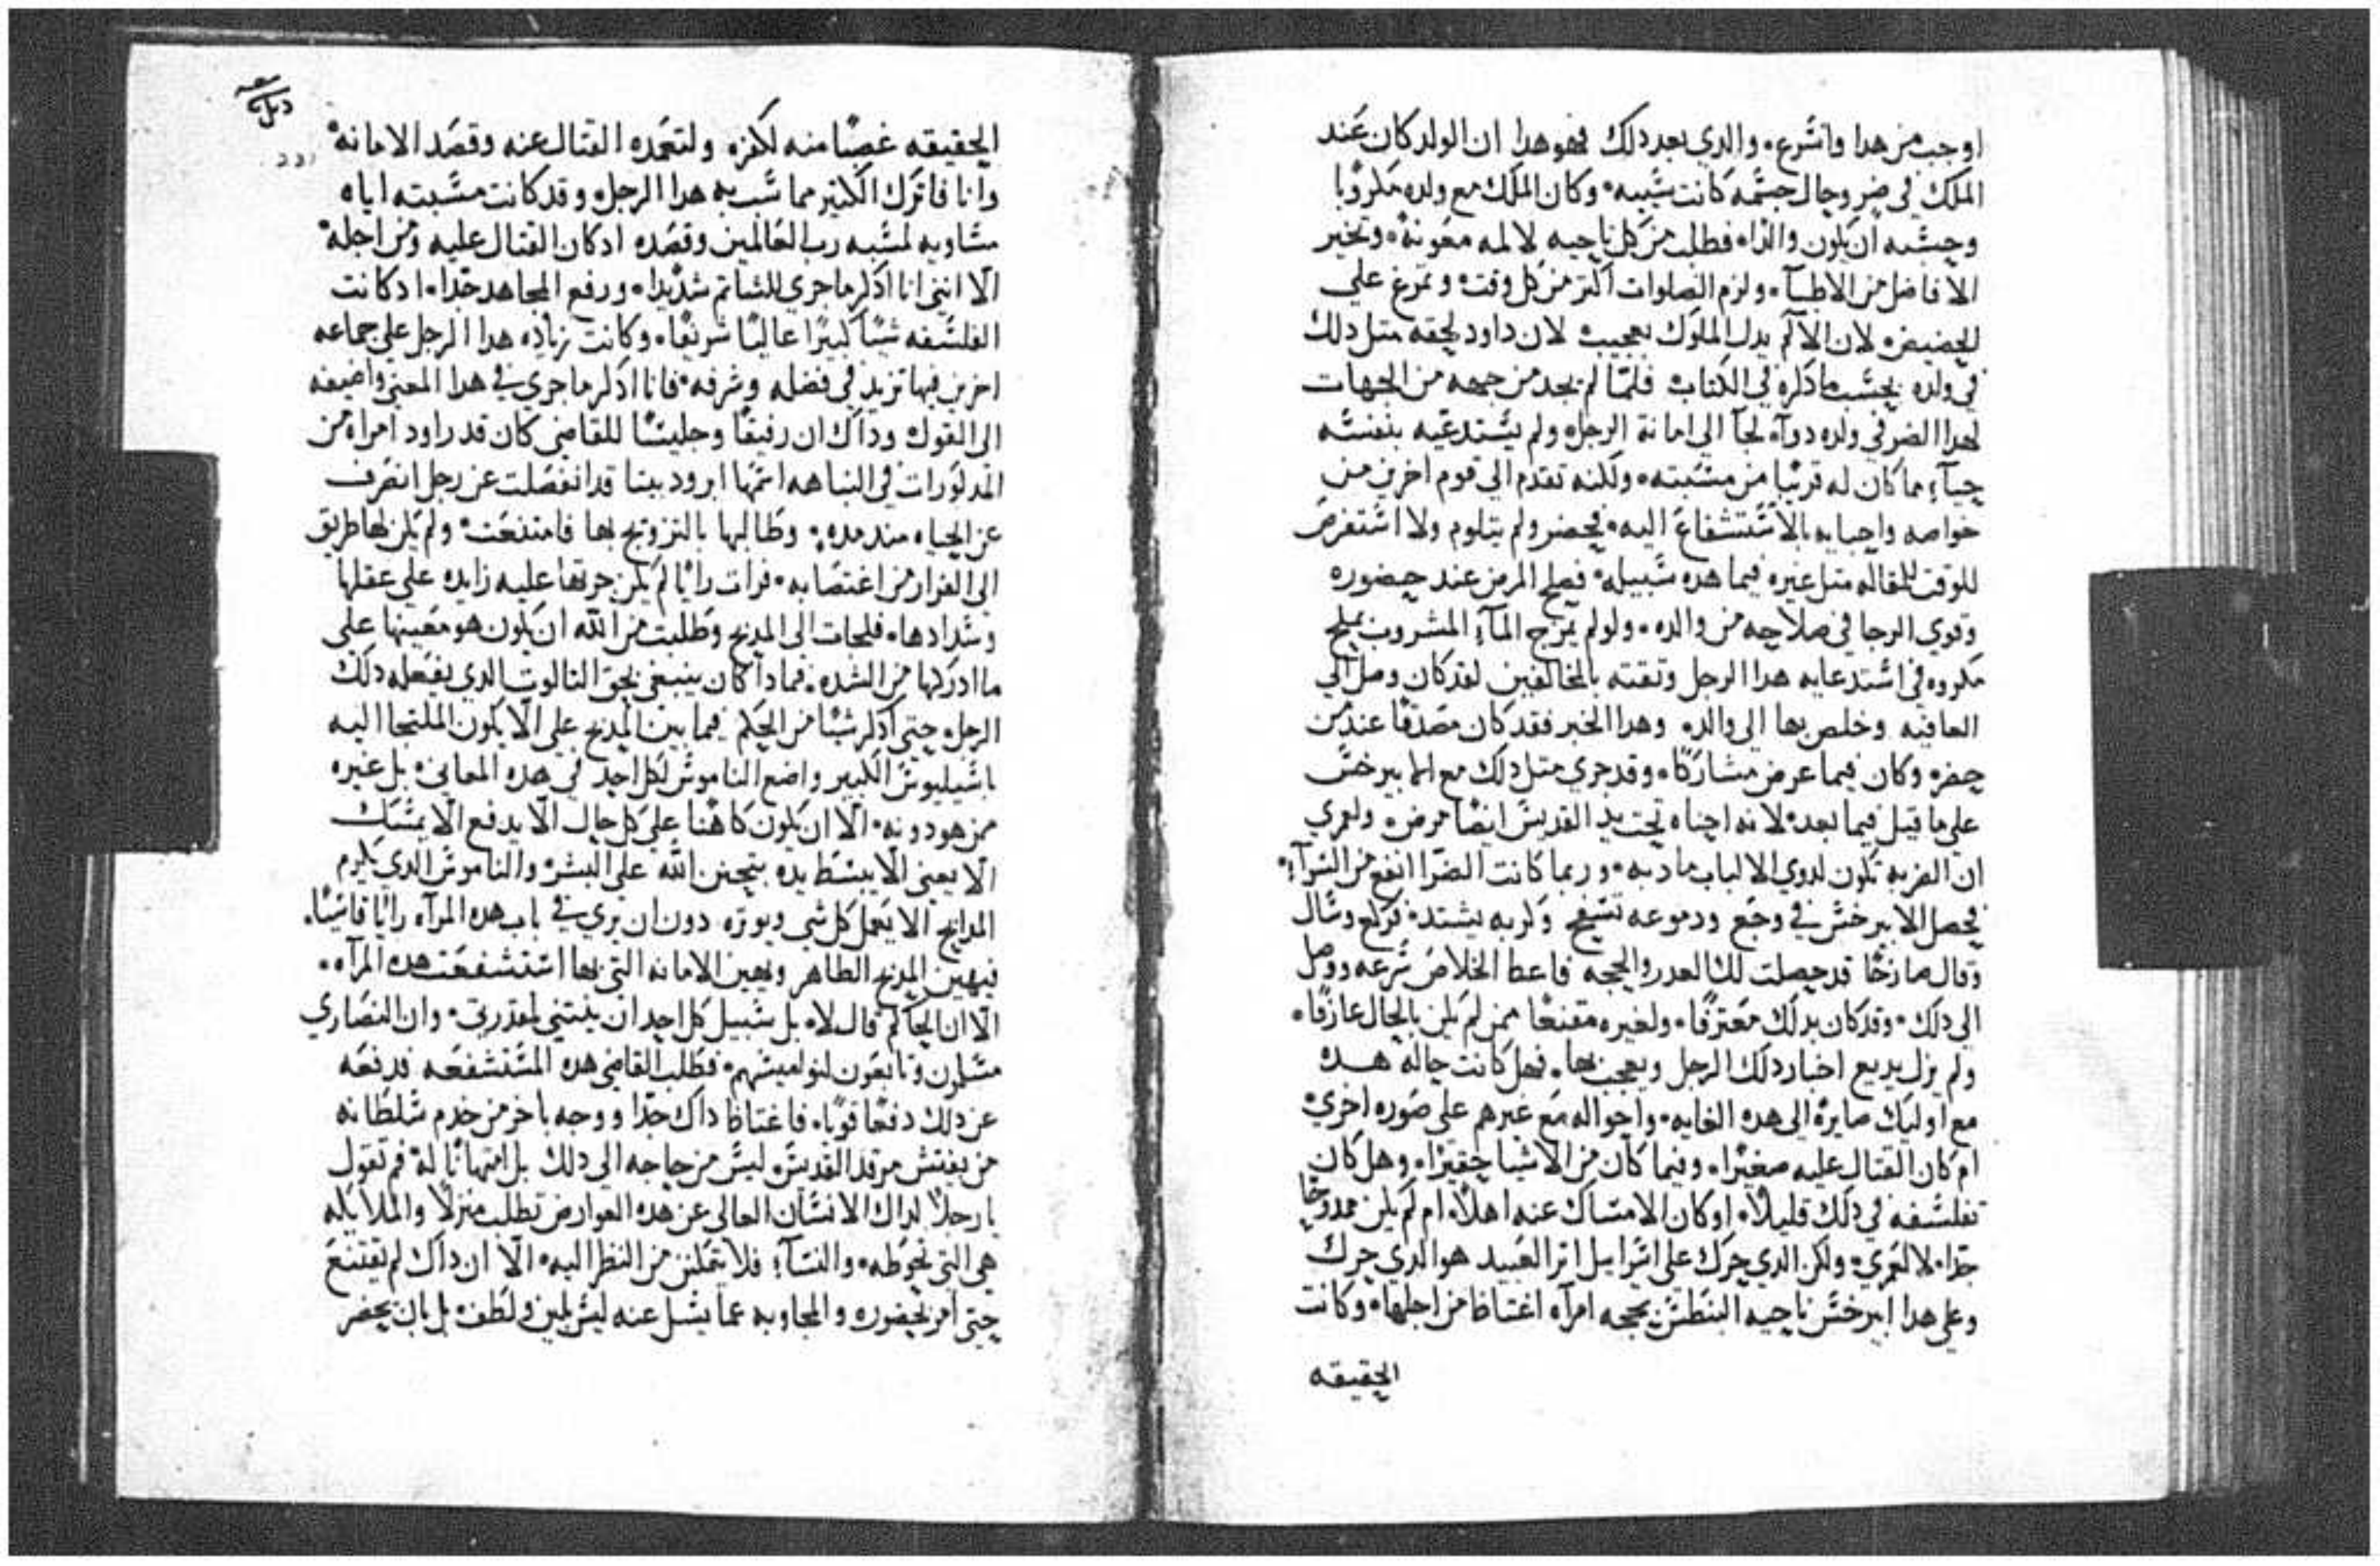 اوجب من هدا واشرع. والدي بعد دلك فهو هدا ان الولد كان عند
الملك في ضر وحال جسمه كانت سيئه. وكان الملك مع ولده مكروبا
وحسبه ان يكون والدا. فطلب من كل ناحيه لالمه معونة. وتخير
الافاضل من الاطبآ. ولزم الصلوات اكتر من كل وقت. وتمرغ على
الحضيض. لان الالم يدل الملوك بعجيب لان داود لحقه متل دلك
في ولده بحسب مادكره في الكتاب فلما لم يجد من جهه من الجهات
لهدا الضر في ولده دوآء لجآ الى امانة الرجل. ولم يستدعيه بنفسه
حيآء مما كان له قريبا من مسبته. ولكنه تقدم الي قوم اخرين من
خواصه واحبايه بالاستشفاع اليه. فحضر ولم يتلوم ولا استفرص
للوقت للمقاله متل غيره فيما هده سبيله. فصلح المرض عند حضوره
وقوي الرجا في صلاحه من والده. ولو لم يمزج المآء المشروب بملح
مكروه في استدعايه هدا الرجل وتقته بالمخالفين لقد كان وصل الي
العافيه وخلص بها الى والده وهدا الخبر فقد كان مصدقا عند من
حضره وكان فيما عرض مشاركا. وقد جري متل دلك مع الابيرخس
علي ما قيل فيما بعد. لانه احناه تحت يد القديس ايضا مرض. ولعمري
ان الضربه تكون لدوي الالباب مادبه. وربما كانت الضرا انفع من السرآء.
فحصل الابيرخس في وجع ودموعه تسفح وكربه يشتد. فركع وسال
وقال صارخا قد حصلت لك العدر والحجه فاعط الخلاص سرعه ووصل
الى دلك. وقد كان بدلك معترفا. ولغيره مقنعا ممن لم يكن بالحال عارفا.
ولم يزل يديع اخبار دلك الرجل ويعجب بها. فهل كانت حاله هده
مع اوليك صايرة الى هده الغايه. واحواله مع غيرهم على صوره اخرى
ام كان القتال عليه صغيرا. وفيما كان من الاشيا حقيرا. وهل كان
تفلسفه في دلك قليلا. او كان الامساك عنه اهلا. ام لم يكن ممدوحا
جدا. لا لعمري. ولكن الدي حرك على اسرايل اتر العبيد هو الدي حرك
وعلي هدا ابيرخس ناحيه البنطس بحجه امرآه اغتاظا من اجلها. وكانت
الحقيقه
الحقيقه غصبا منه لكفره ولتعمده القتال عنه وقصد الامانة
وانا فاترك الكتير مما سب به هدا الرجل. وقد كانت مسبته اياه
مساويه لمسبه رب العالمين وقصده ادكان القتال عليه ومن اجله
الا انني انا ادكر ما جري للشاتم شديدا. ورفع المجاهد جدا. ادكانت
الفلسفه شيا كبيرا عاليا شريفا. وكانت زياده هدا الرجل على جماعه
اخرين فيها تزيد في فضله وشرفه. فانا ادكر ما جري في هدا المعنى واضيفه
الى القول. وداك ان رفيقا وجليسا للقاضي كان قد راود امراه من
المدكورات في النباهه اسمها ابرود بيتا قد انفصلت عن رجل انصرف
عن الحياه مند مده. وطالبها بالتزويج بها فامتنعت. ولم يكن لها طريق
الى الفرار من اغتصابه. فرات رايا لم يكن جرتها عليه زايده على عقلها
وسدادها. فلجات الى المدبح وطلبت من الله ان يكون هو معينها علي
ما ادركها من الشده. فمادا كان ينبغي بحق التالوت الدي يفعله دلك
الرجل. حتى ادكر شيا من الحكم فيما بين المدبح علي الا يكون الملتجا اليه
باسيليوس الكبير واضع الناموس لكل احد في هده المعاني. بل غيره
من هو دونه. الا ان يكون كاهنا على كل حال الا يدفع الا يمسك
الا يعنى الا يبسط يده بتحنن الله علي البشر. والناموس الدي يكرم
المدابح الا يعمل كل شي ويوتره دون ان يري في باب هده المرآه رايا قاسيا.
فيهين المدبح الطاهر ويهين الامانه التي بها استشفعت هده المرآه.
الا ان الحاكم قال لا. بل سبيل كل احد ان ينتني لمقدرتي. وان النصاري
مسلمون وتابعون لنواميسهم. فطلب القاضي هده المستشفعه فدفعه
عن دلك دفعا قويا. فاغتاظا داك جدا ووجه باخر من خدم سلطانه
من يفتش مرقد القديس. ليس من حاجه الى دلك بل امتهانا له. فم تقول
يا رجلا لداك الانسان العالي عن هده العوارض تطلب منزلا والملايكه
هي التي تحوطه. والنسآء فلا يتمكنن من النظر اليه. الا ان داك لم يقتنع
حتى امر بحضوره والمجاوبه عما يسل عنه ليس بلين ولطف. بل بان يحضر